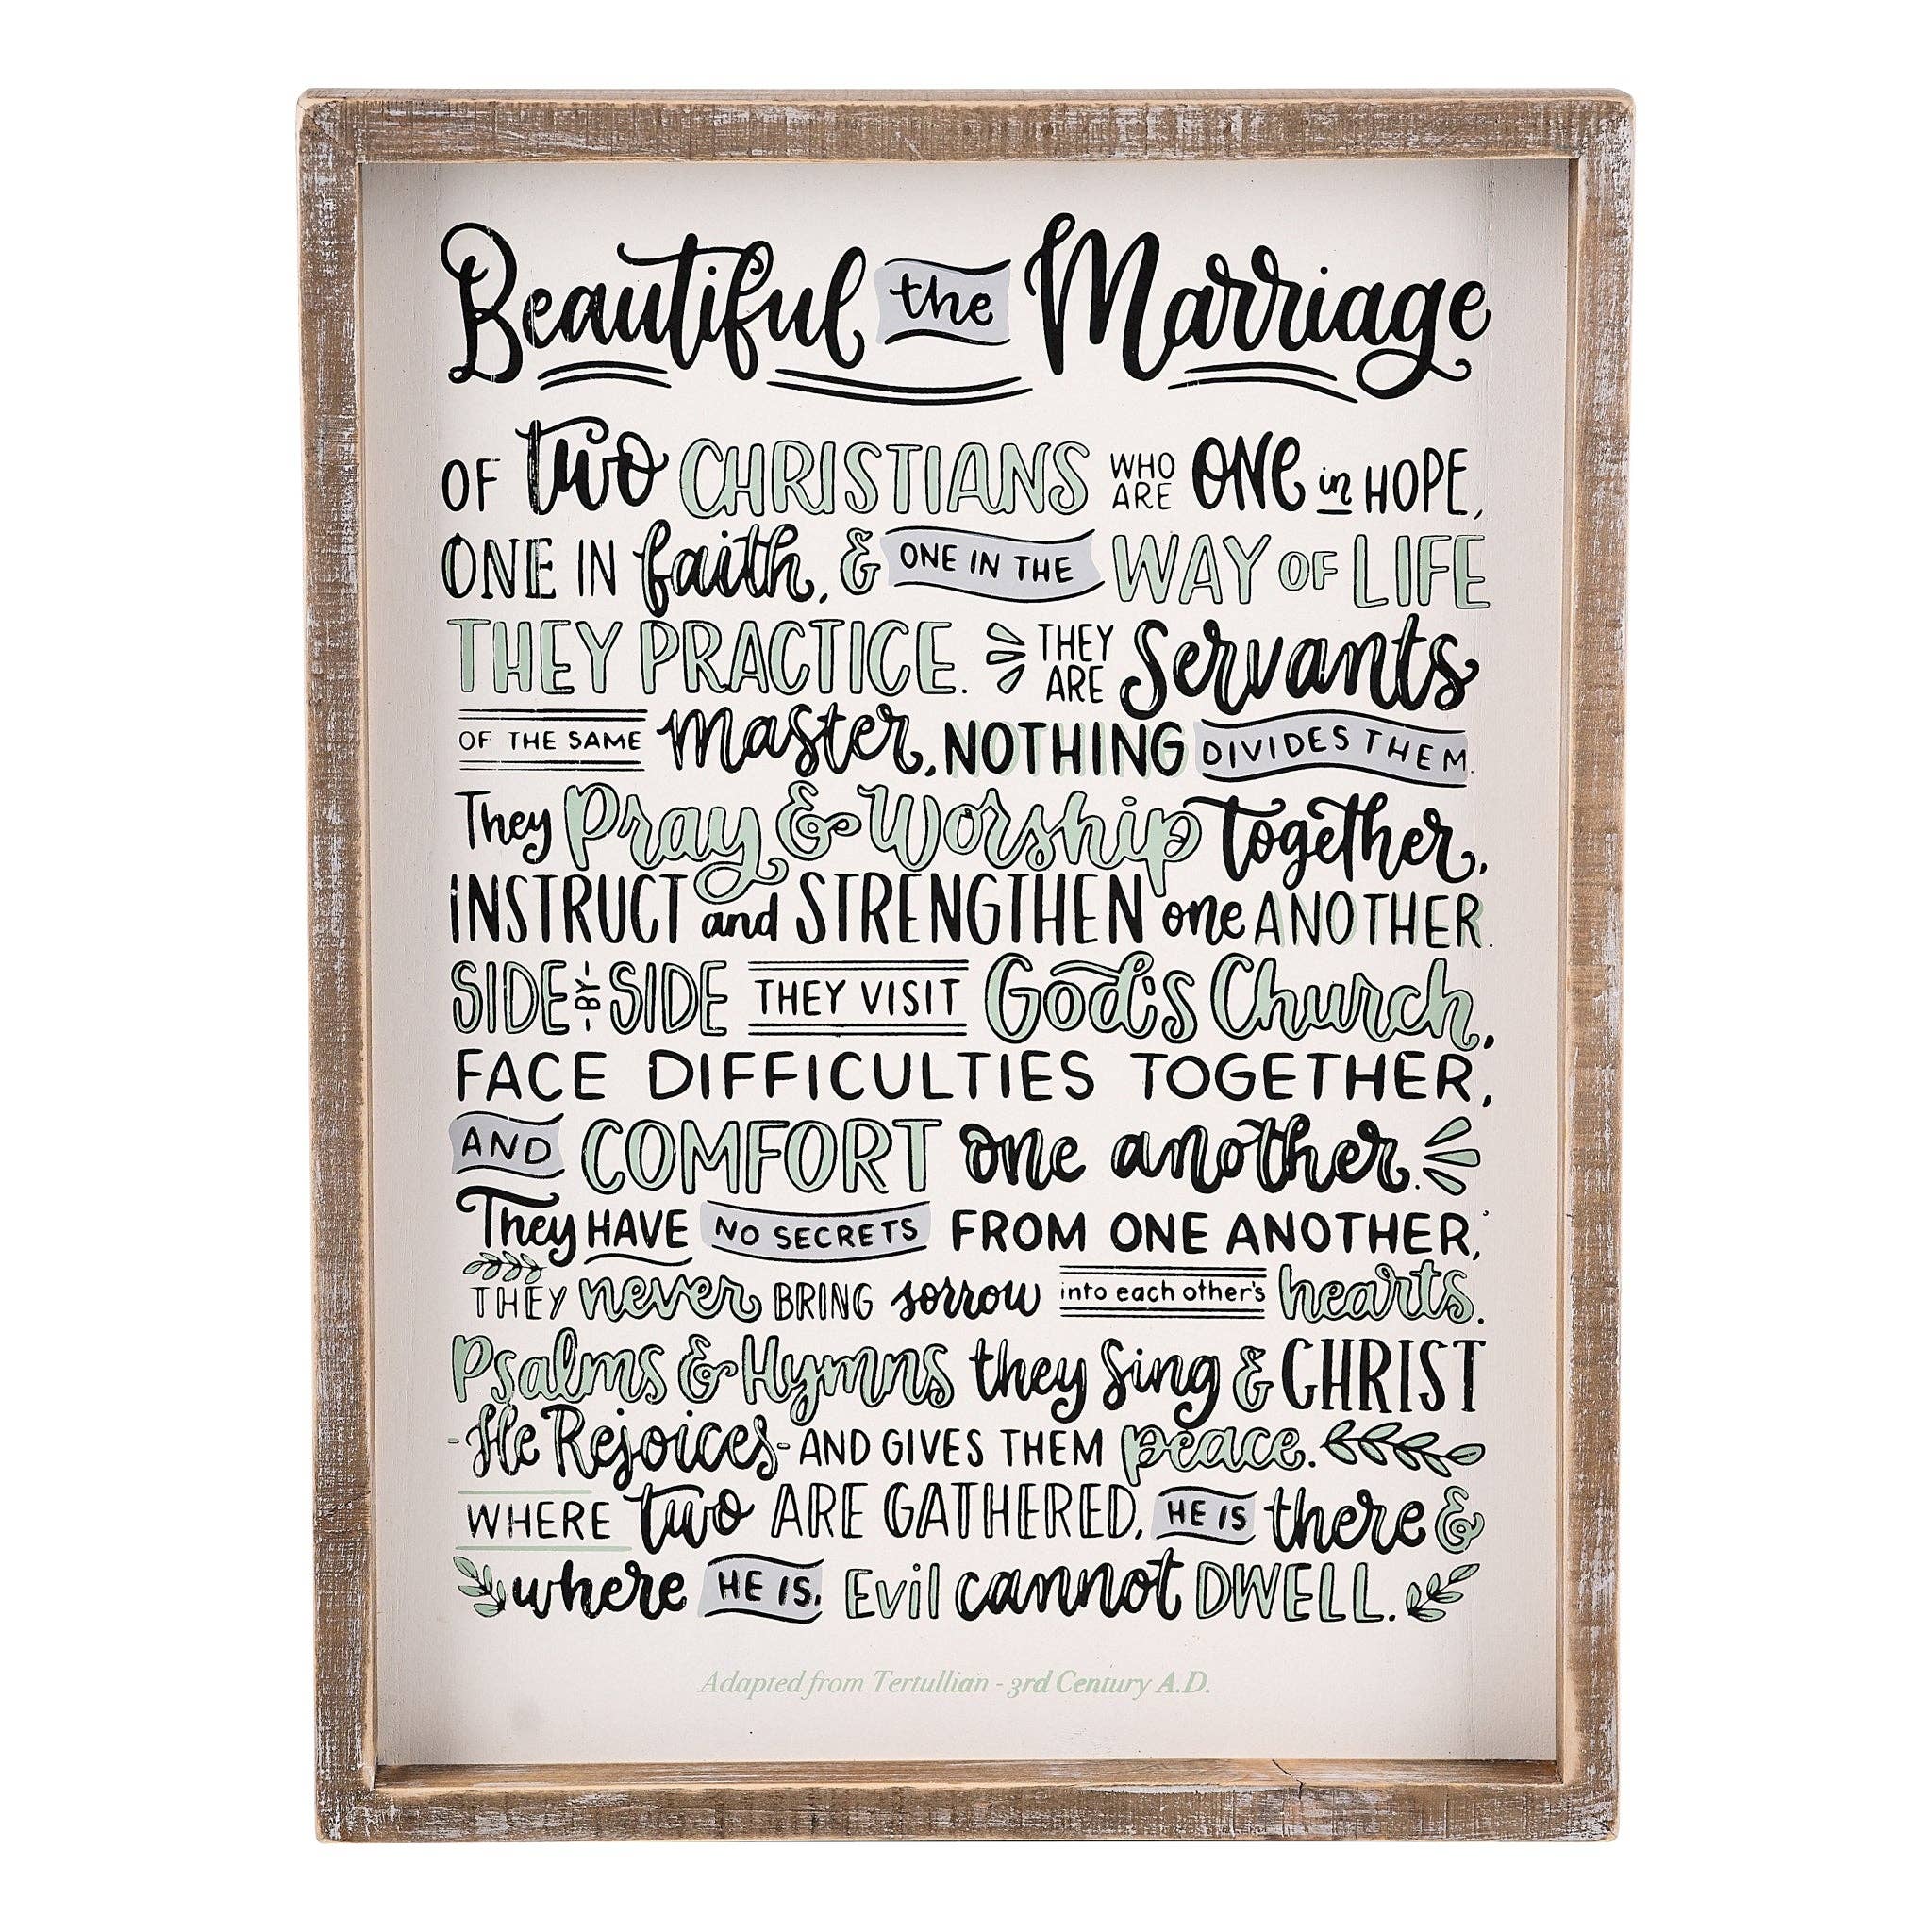 Beautiful the Marriage
OF Two CHRISTIANS WHO ARE ONE in HOPE,
ONE IN faith, & ONE IN THE WAY OF LIFE
THEY PRACTICE. THEY ARE Servants
OF THE SAME Master, NOTHING DIVIDES THEM.
They Pray & Worship together,
INSTRUCT and STRENGTHEN one ANOTHER.
SIDE-BY-SIDE THEY VISIT God's Church,
FACE DIFFICULTIES TOGETHER,
AND COMFORT one another.
They HAVE NO SECRETS FROM ONE ANOTHER,
THEY never BRING sorrow into each other's hearts.
Psalms & Hymns they Sing & CHRIST
-He Rejoices- AND GIVES THEM peace.
WHERE two ARE GATHERED, HE IS there &
where HE IS, Evil cannot DWELL.
Adapted from Tertullian - 3rd Century A.D.